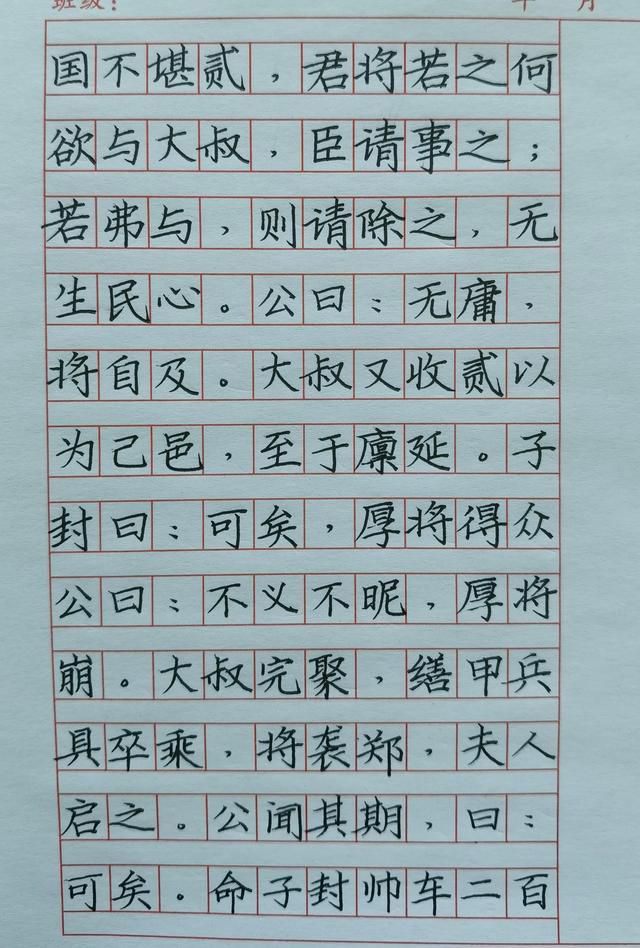 班级： 年 月
国不堪贰，君将若之何
欲与大叔，臣请事之；
若弗与，则请除之，无
生民心。公曰：无庸，
将自及。大叔又收贰以
为己邑，至于廪延。子
封曰：可矣，厚将得众
公曰：不义不昵，厚将
崩。大叔完聚，缮甲兵
具卒乘，将袭郑，夫人
启之。公闻其期，曰：
可矣。命子封帅车二百